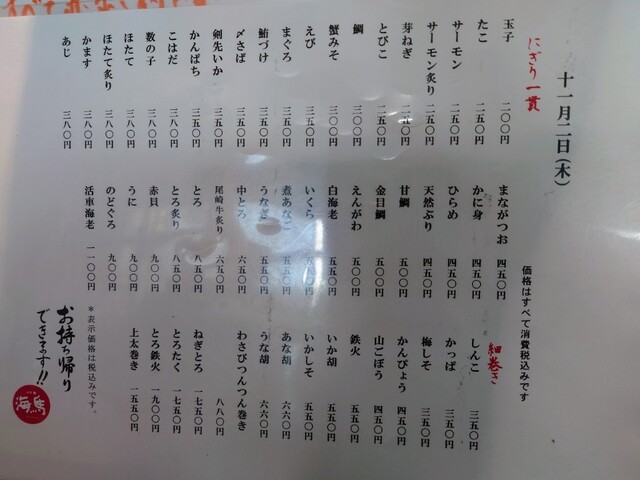 十一月二日(木)
にぎり一貫
玉子 二〇〇円
たこ 二五〇円
サーモン 二五〇円
サーモン炙り 二五〇円
芽ねぎ 二五〇円
とびこ 二五〇円
鯛 三〇〇円
蟹みそ 三〇〇円
えび 三五〇円
まぐろ 三五〇円
鮪づけ 三五〇円
〆さば 三五〇円
剣先いか 三五〇円
かんぱち 三五〇円
こはだ 三八〇円
数の子 三八〇円
ほたて 三八〇円
ほたて炙り 三八〇円
かます 三八〇円
あじ 三八〇円
価格はすべて消費税込みです
まながつお 四五〇円
かに身 四五〇円
ひらめ 四五〇円
天然ぶり 四五〇円
甘鯛 五〇〇円
金目鯛 五〇〇円
えんがわ 五〇〇円
白海老 五五〇円
いくら 五五〇円
煮あなご 五五〇円
うなぎ 五五〇円
中とろ 六五〇円
尾崎牛炙り 六五〇円
とろ 八五〇円
とろ炙り 八五〇円
赤貝 九〇〇円
うに 九〇〇円
のどぐろ 九〇〇円
活車海老 一一〇〇円
細巻き
しんこ 三五〇円
かっぱ 三五〇円
梅しそ 三五〇円
かんぴょう 四五〇円
山ごぼう 四五〇円
鉄火 五五〇円
いか胡 五五〇円
いかしそ 五五〇円
あな胡 六六〇円
うな胡 六六〇円
わさびつんつん巻き 八八〇円
ねぎとろ 一七五〇円
とろたく 一七五〇円
とろ鉄火 一九〇〇円
上太巻き 一五五〇円
*表示価格は税込みです。
お持ち帰り
できます!!
海馬